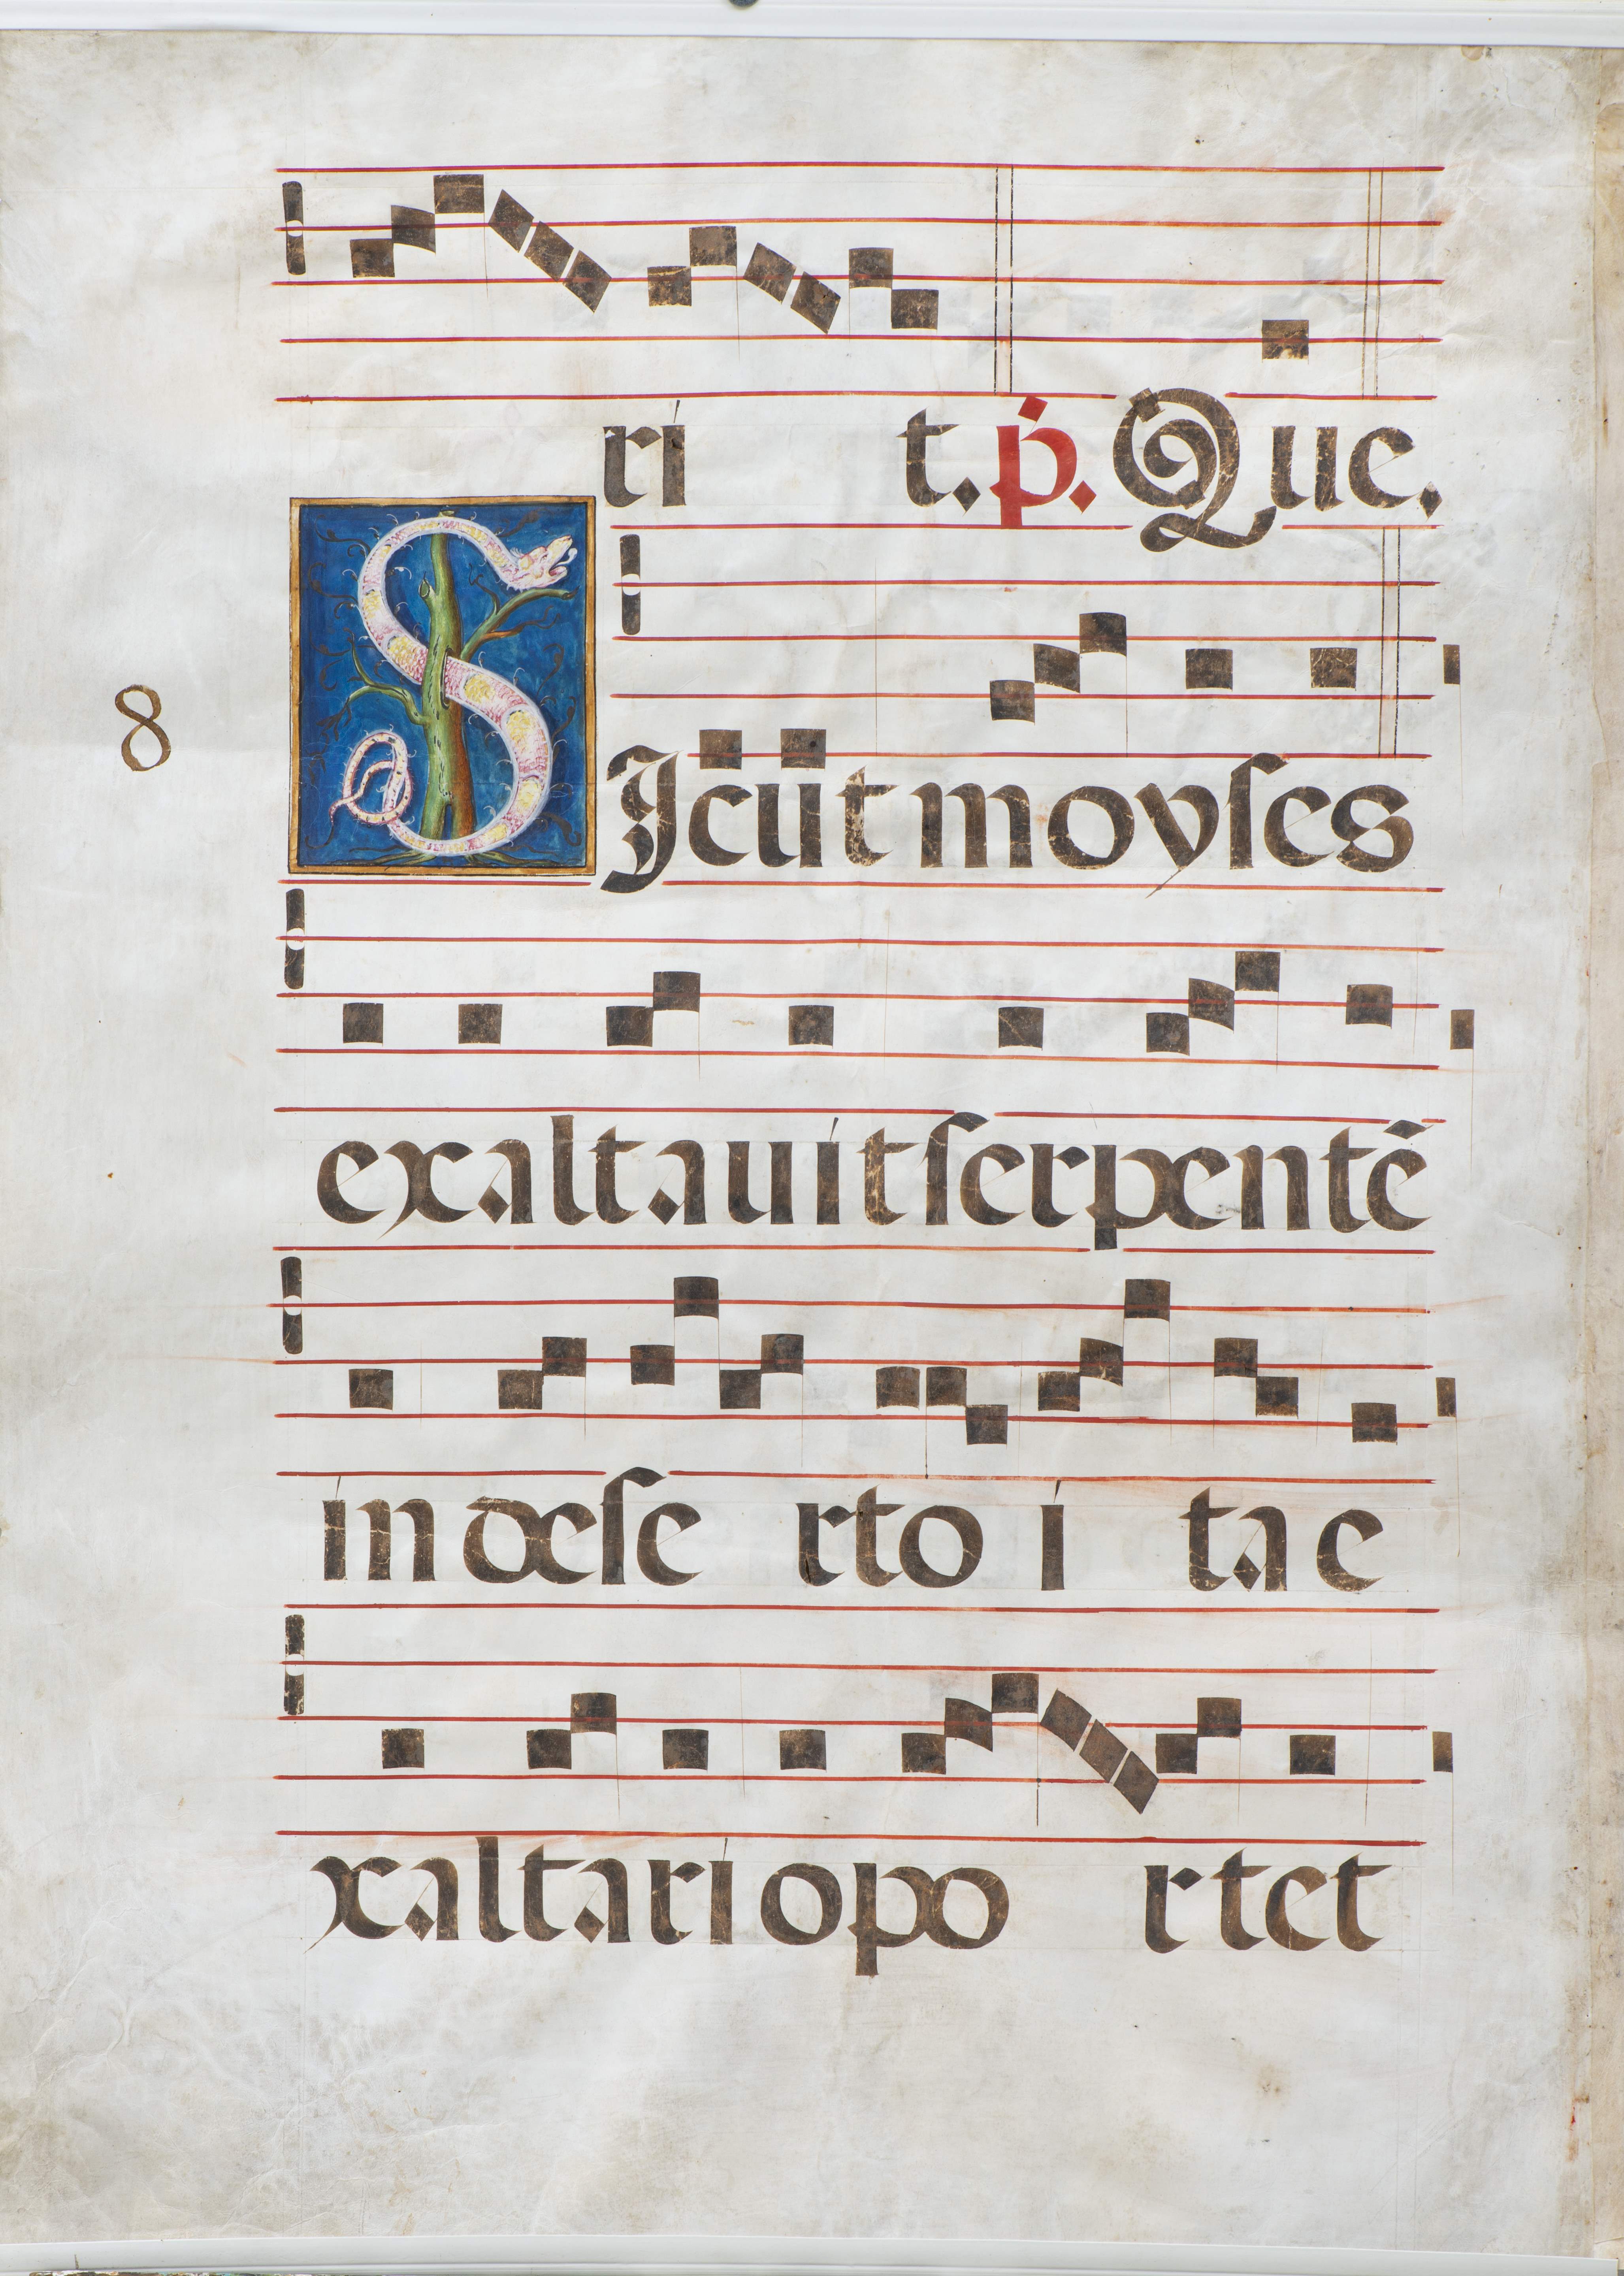 ri t. p. Que.
8
SIcut moyses
exaltauit serpentē
in dese rto i ta e
xaltari opo rtet